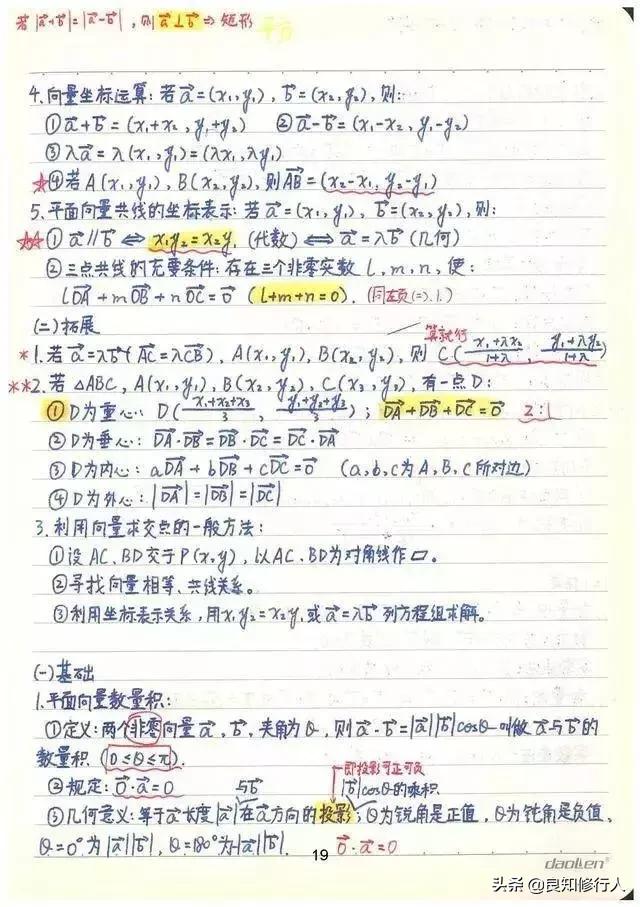 若|a⃗+b⃗|=|a⃗-b⃗|,则a⃗⊥b⃗⇒矩形 平方
4.向量坐标运算:若a⃗=(x₁,y₁),b⃗=(x₂,y₂),则:
①a⃗+b⃗=(x₁+x₂,y₁+y₂) ②a⃗-b⃗=(x₁-x₂,y₁-y₂)
③λa⃗=λ(x₁,y₁)=(λx₁,λy₁)
☆④若A(x₁,y₁),B(x₂,y₂),则AB⃗=(x₂-x₁,y₂-y₁)
5.平面向量共线的坐标表示:若a⃗=(x₁,y₁),b⃗=(x₂,y₂),则:
☆☆①a⃗∥b⃗⇔x₁y₂=x₂y₁(代数)⇔a⃗=λb⃗(几何)
②三点共线的充要条件:存在三个非零实数l,m,n,使:
lDA⃗+mOB⃗+nOC⃗=0⃗(l+m+n=0).(同左页(=).1.)
(二)拓展
算就行
*1.若a⃗=λb⃗(AC⃗=λCB⃗),A(x₁,y₁),B(x₂,y₂),则C((x₁+λx₂)/(1+λ),(y₁+λy₂)/(1+λ))
**2.若△ABC,A(x₁,y₁),B(x₂,y₂),C(x₃,y₃),有一点D:
①D为重心:D((x₁+x₂+x₃)/3,(y₁+y₂+y₃)/3);DA⃗+DB⃗+DC⃗=0⃗ 2:1
②D为垂心:DA⃗·DB⃗=DB⃗·DC⃗=DC⃗·DA⃗
③D为内心:aDA⃗+bDB⃗+cDC⃗=0⃗ (a,b,c为A,B,C所对边)
④D为外心:|DA⃗|=|DB⃗|=|DC⃗|
3.利用向量求交点的一般方法:
①设AC、BD交于P(x,y),以AC、BD为对角线作▱。
②寻找向量相等、共线关系。
③利用坐标表示关系,用x₁y₂=x₂y₁或a⃗=λb⃗列方程组求解。
(一)基础
1.平面向量数量积:
①定义:两个非零向量a⃗,b⃗,夹角为θ,则a⃗·b⃗=|a⃗||b⃗|cosθ叫做a⃗与b⃗的
数量积(0≤θ≤π).
即投影可正可负
②规定:0⃗·a⃗=0 与b⃗ |b⃗|cosθ的乘积.
③几何意义:等于a⃗长度|a⃗|在a⃗方向的投影;θ为锐角是正值,θ为钝角是负值,
θ=0°为|a⃗||b⃗|,θ=180°为-|a⃗||b⃗|. 19 0⃗·a⃗=0
daolien®
头条 @良知修行人